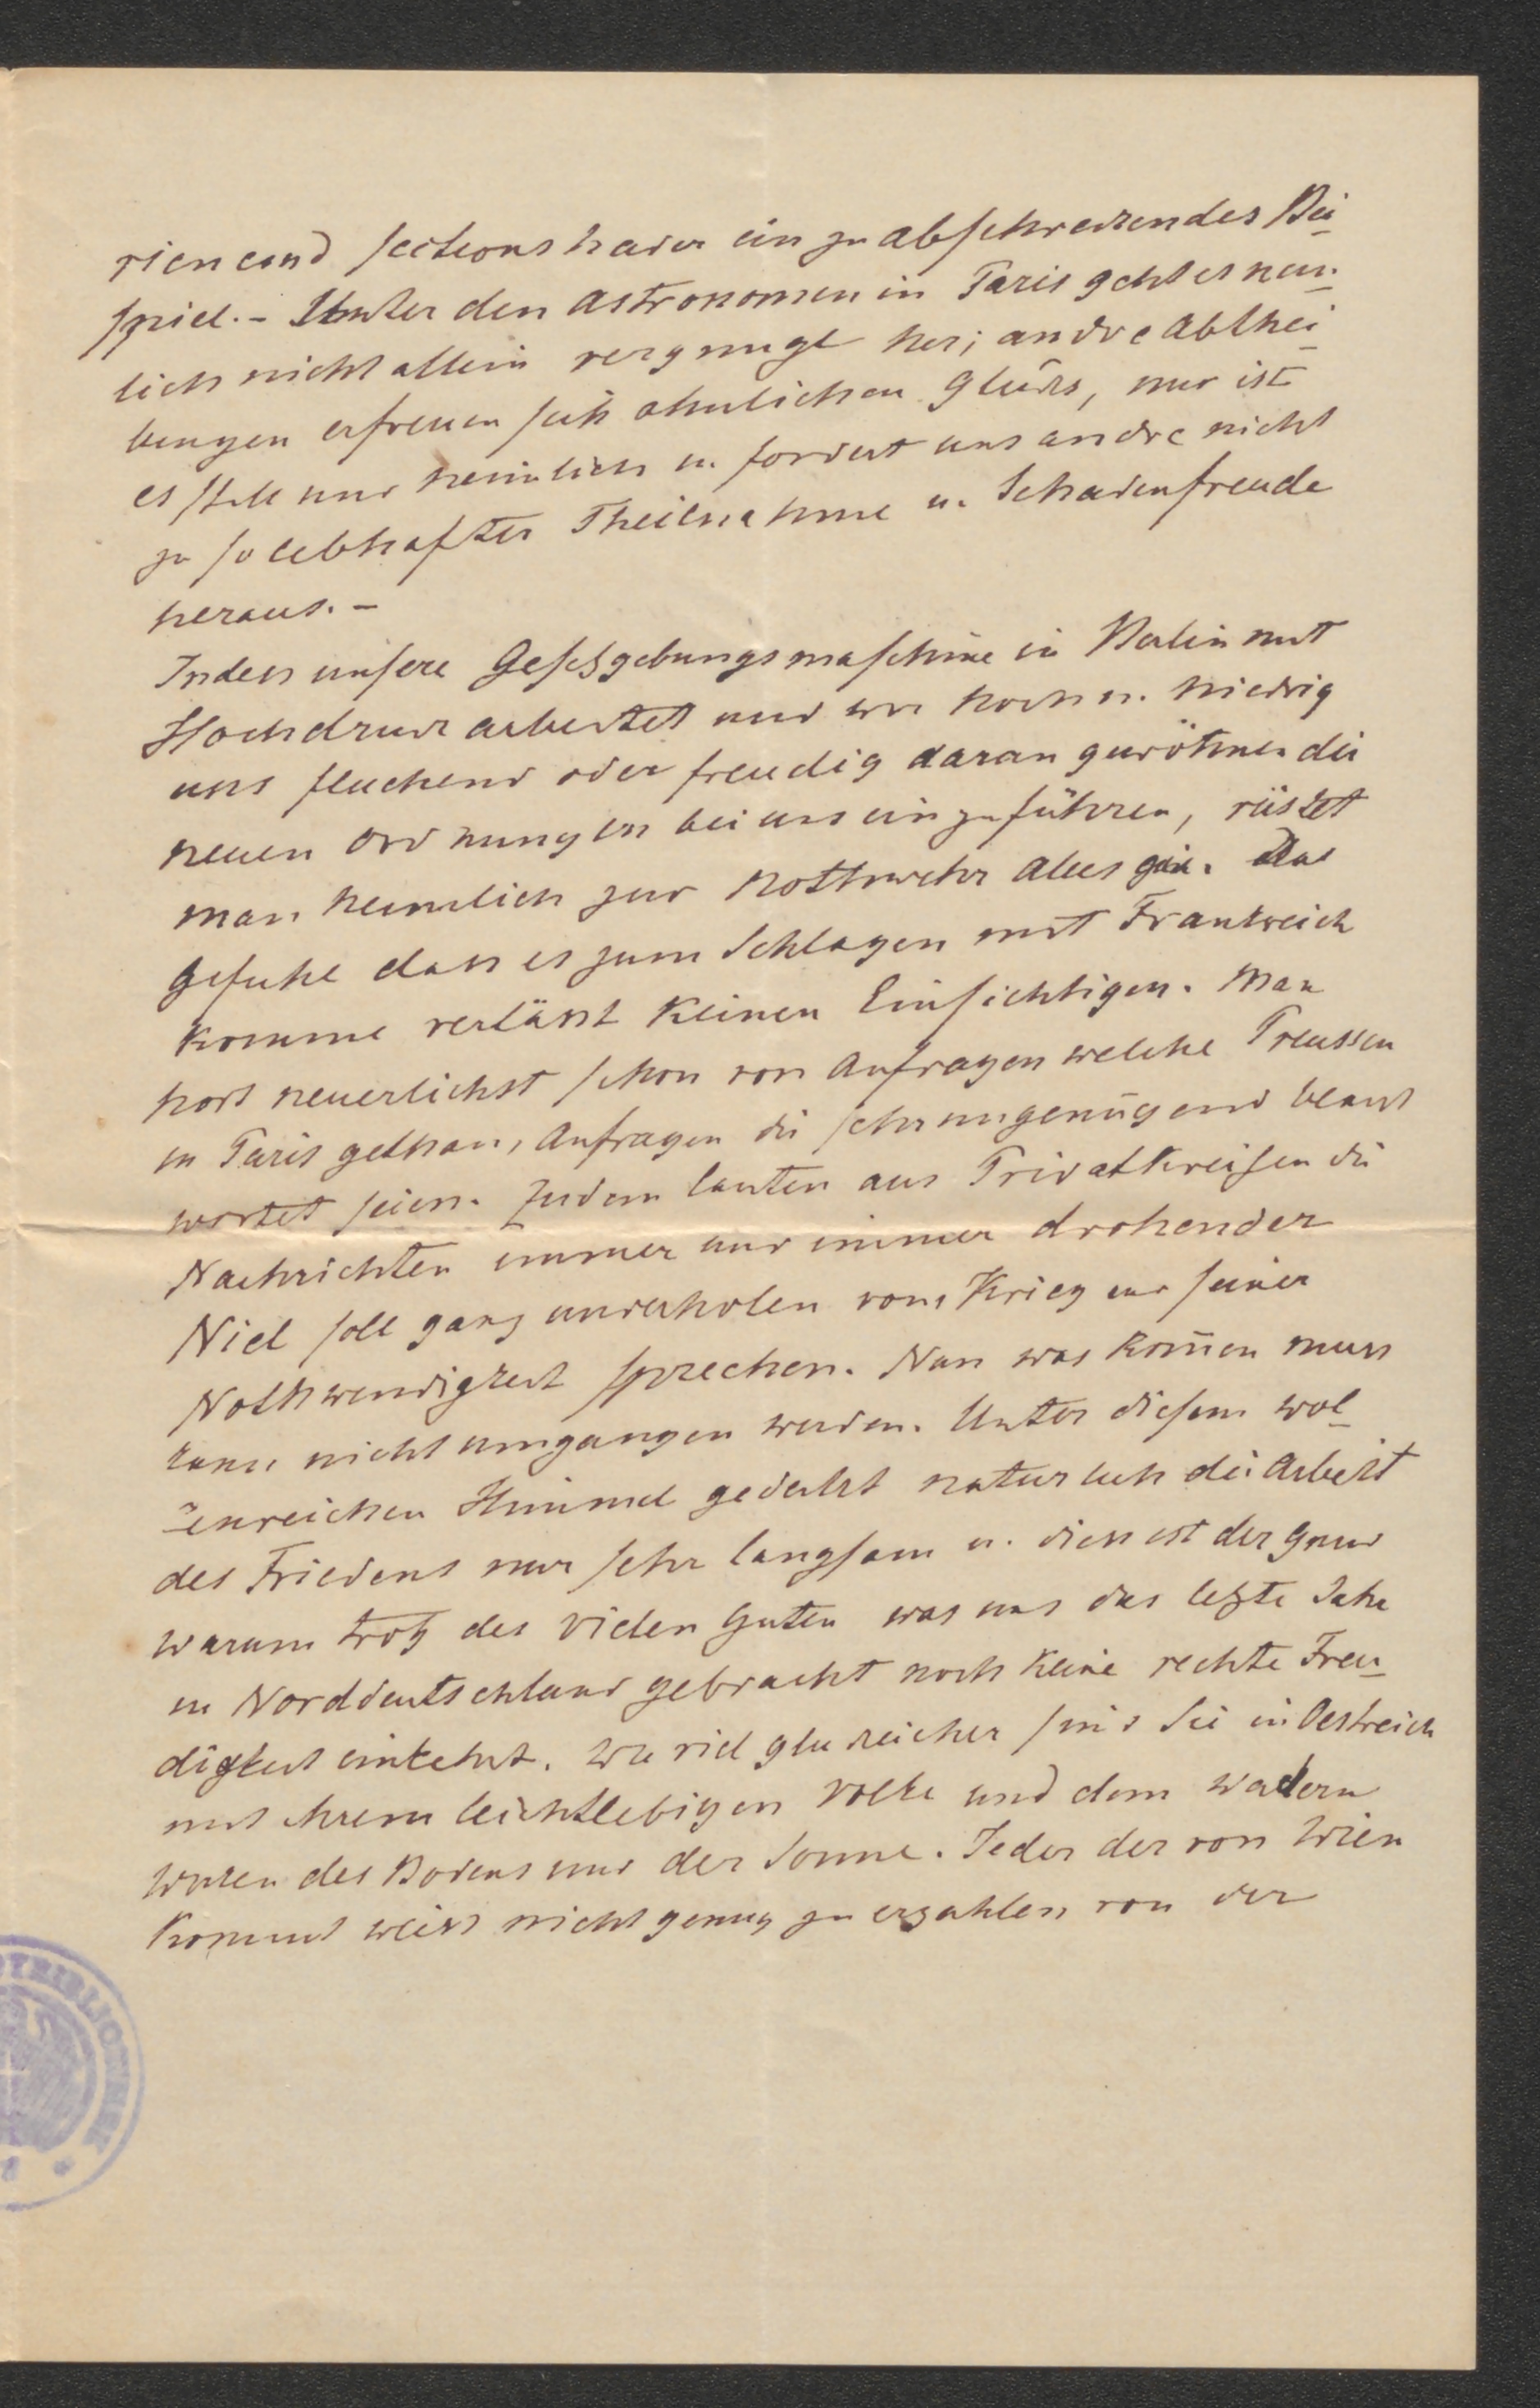 rien und sections hader ein zu abschreckendes Bei-
spiel. - Unter den Astronomen in Paris geht es nem-
lich nicht allein vergnugt her; andre Abthei-
lungen erfreuen sich ahnlichen Glücks, nur ist
es still und heimlich u. fordert uns andre nicht
zu so lebhafter Theilnahme u. Schadenfreude
heraus. -
Indess unsere Gesetzgebungsmaschine in Berlin mit
Hochdruck arbeitet und wir hoch u. niedrig
uns fluchend oder freudig daran gewöhnen die
neuen Ordnungen bei uns einzuführen, rüstet
man heimlich zur Nothwehr alles  Das
Gefuhl dass es zum Schlagen mit Frankreich
komme verlässt keinen Einsichtigen. Man
hort neuerlichst schon von Anfragen welche Preussen
in Paris gethan, Anfragen die sehr ungenügend beant
wortet seien. Zudem lauten aus Privatkreisen die
Nachrichten immer und immer drohender
Niel soll ganz unverholen vom Krieg und seiner
Nothwendigkeit sprechen. Nun was kom̄en muss
kann nicht umgangen werden. Unter diesem wol-
kenreichen Himmel gedeiht naturlich die Arbeit
des Friedens nur sehr langsam u. diess ist der Grund
warum trotz des vielen Guten was uns das letzte Jahr
in Norddeutschland gebracht noch keine rechte Freu-
digkeit einkehrt. Wie viel glucklicher sind Sie in Oestreich
mit ihrem leichtlebigen Volke und dem wackern
 des Bodens und der Sonne. Jeder der von Wien
kommt weiss nicht genug zu erzahlen von der